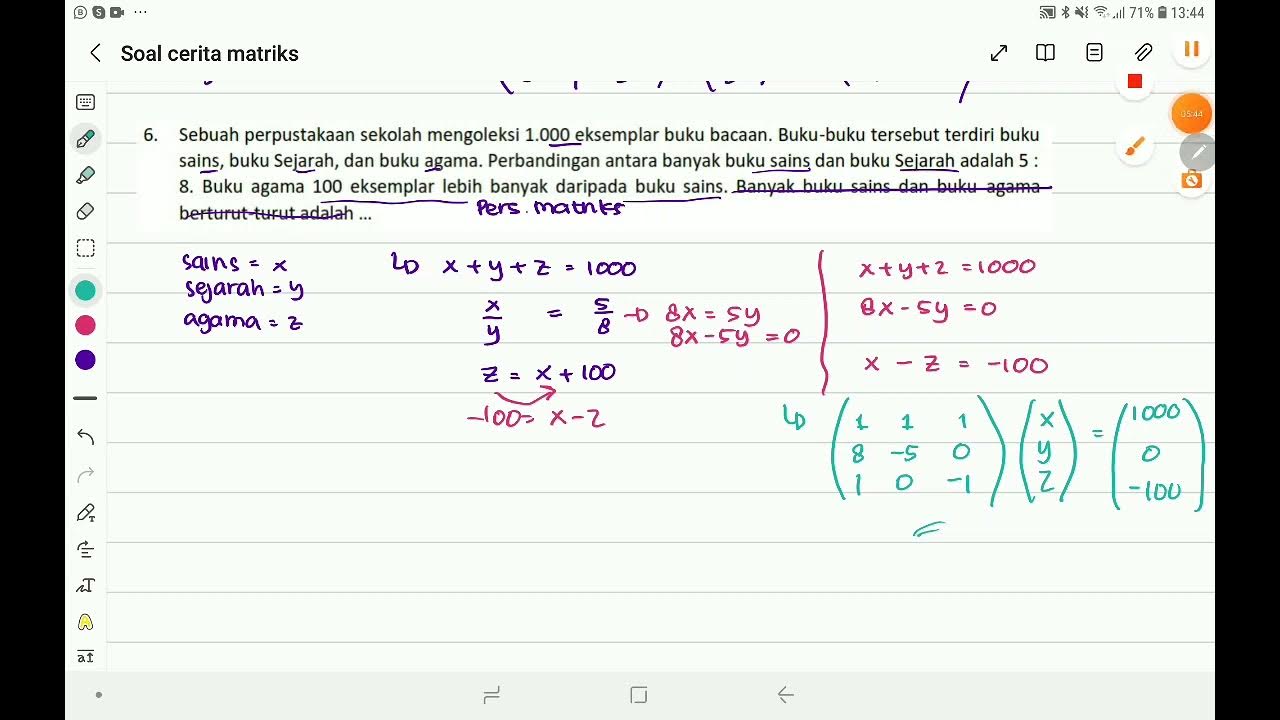 71% 13:44
Soal cerita matriks
05:44
6. Sebuah perpustakaan sekolah mengoleksi 1.000 eksemplar buku bacaan. Buku-buku tersebut terdiri buku
sains, buku Sejarah, dan buku agama. Perbandingan antara banyak buku sains dan buku Sejarah adalah 5 :
8. Buku agama 100 eksemplar lebih banyak daripada buku sains. Banyak buku sains dan buku agama
berturut-turut adalah ...
Pers. matriks
sains = x
sejarah = y
agama = z
x + y + z = 1000
x/y = 5/8 → 8x = 5y
8x - 5y = 0
z = x + 100
-100 = x - z
x + y + z = 1000
8x - 5y = 0
x - z = -100
( 1 1 1 ) ( x ) = ( 1000 )
( 8 -5 0 ) ( y ) ( 0 )
( 1 0 -1 ) ( z ) ( -100 )